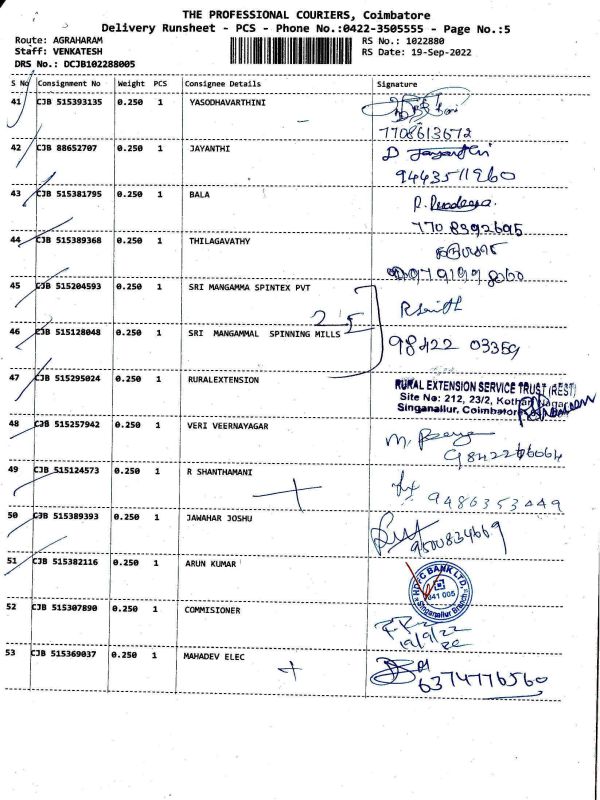 THE PROFESSIONAL COURIERS, Coimbatore
Delivery Runsheet - PCS - Phone No.:0422-3505555 - Page No.:5
Route: AGRAHARAM
Staff: VENKATESH
DRS No.: DCJB102288005
RS No.: 1022880
RS Date: 19-Sep-2022
S No Consignment No Weight PCS Consignee Details Signature
41 CJB 515393135 0.250 1 YASODHAVARTHINI
7708613672
42 CJB 88652707 0.250 1 JAYANTHI D Jayanthi
9443511960
43 CJB 515381795 0.250 1 BALA
7708392695
44 CJB 515389368 0.250 1 THILAGAVATHY
45 CJB 515204593 0.250 1 SRI MANGAMMA SPINTEX PVT
46 CJB 515128048 0.250 1 SRI MANGAMMAL SPINNING MILLS
98422 03359
47 CJB 515295024 0.250 1 RURALEXTENSION RURAL EXTENSION SERVICE TRUST (REST)
Site No: 212, 23/2, Kothari Nagar
Singanallur, Coimbatore
48 CJB 515257942 0.250 1 VERI VEERNAYAGAR
49 CJB 515124573 0.250 1 R SHANTHAMANI
9486353449
50 CJB 515389393 0.250 1 JAWAHAR JOSHU
9500834669
51 CJB 515382116 0.250 1 ARUN KUMAR HDFC BANK LTD.
641 005
Singanallur Branch
52 CJB 515307890 0.250 1 COMMISIONER
19/9/22
53 CJB 515369037 0.250 1 MAHADEV ELEC
6374776560